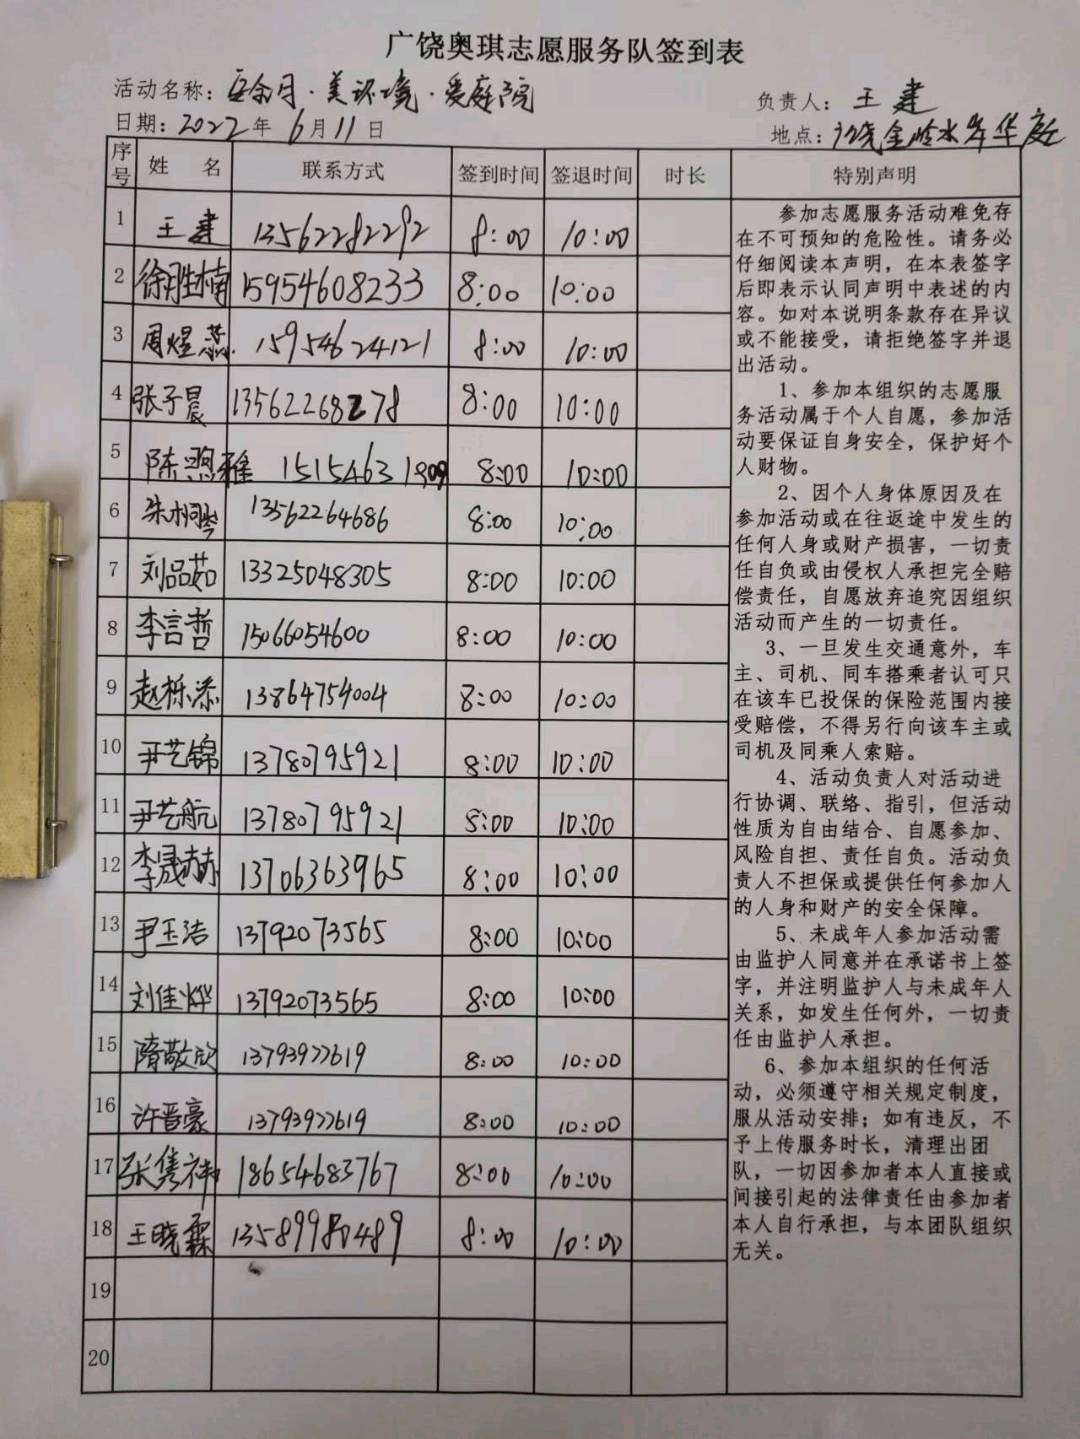 广饶奥琪志愿服务队签到表
活动名称：安全月·美环境·爱庭院
负责人：王建
日期：2022年6月11日
地点：广饶金岭水岸华庭
序号 姓名 联系方式 签到时间 签退时间 时长 特别声明
1 王建 13562282292 8:00 10:00
2 徐胜楠 15954608233 8:00 10:00
3 周煜蕊 15954624121 8:00 10:00
4 张子晨 13562268278 8:00 10:00
5 陈雅 1515463 8:00 10:00
6 朱桐岑 13562264686 8:00 10:00
7 刘品茹 13325048305 8:00 10:00
8 李言哲 15066054600 8:00 10:00
9 赵栎添 13864754004 8:00 10:00
10 尹艺锦 13780795921 8:00 10:00
11 尹艺航 13780795921 8:00 10:00
12 李晟赫 13706363965 8:00 10:00
13 尹玉洁 13792073565 8:00 10:00
14 刘佳烨 13792073565 8:00 10:00
15 隋敬欣 13793977619 8:00 10:00
16 许晋豪 13793977619 8:00 10:00
17 张隽祎 18654683767 8:00 10:00
18 王晓霖 13589980489 8:00 10:00
19
20
参加志愿服务活动难免存
在不可预知的危险性。请务必
仔细阅读本声明，在本表签字
后即表示认同声明中表述的内
容。如对本说明条款存在异议
或不能接受，请拒绝签字并退
出活动。
1、参加本组织的志愿服
务活动属于个人自愿，参加活
动要保证自身安全，保护好个
人财物。
2、因个人身体原因及在
参加活动或在往返途中发生的
任何人身或财产损害，一切责
任自负或由侵权人承担完全赔
偿责任，自愿放弃追究因组织
活动而产生的一切责任。
3、一旦发生交通意外，车
主、司机、同车搭乘者认可只
在该车已投保的保险范围内接
受赔偿，不得另行向该车主或
司机及同乘人索赔。
4、活动负责人对活动进
行协调、联络、指引，但活动
性质为自由结合、自愿参加、
风险自担、责任自负。活动负
责人不担保或提供任何参加人
的人身和财产的安全保障。
5、未成年人参加活动需
由监护人同意并在承诺书上签
字，并注明监护人与未成年人
关系，如发生任何外，一切责
任由监护人承担。
6、参加本组织的任何活
动，必须遵守相关规定制度，
服从活动安排；如有违反，不
予上传服务时长，清理出团
队，一切因参加者本人直接或
间接引起的法律责任由参加者
本人自行承担，与本团队组织
无关。